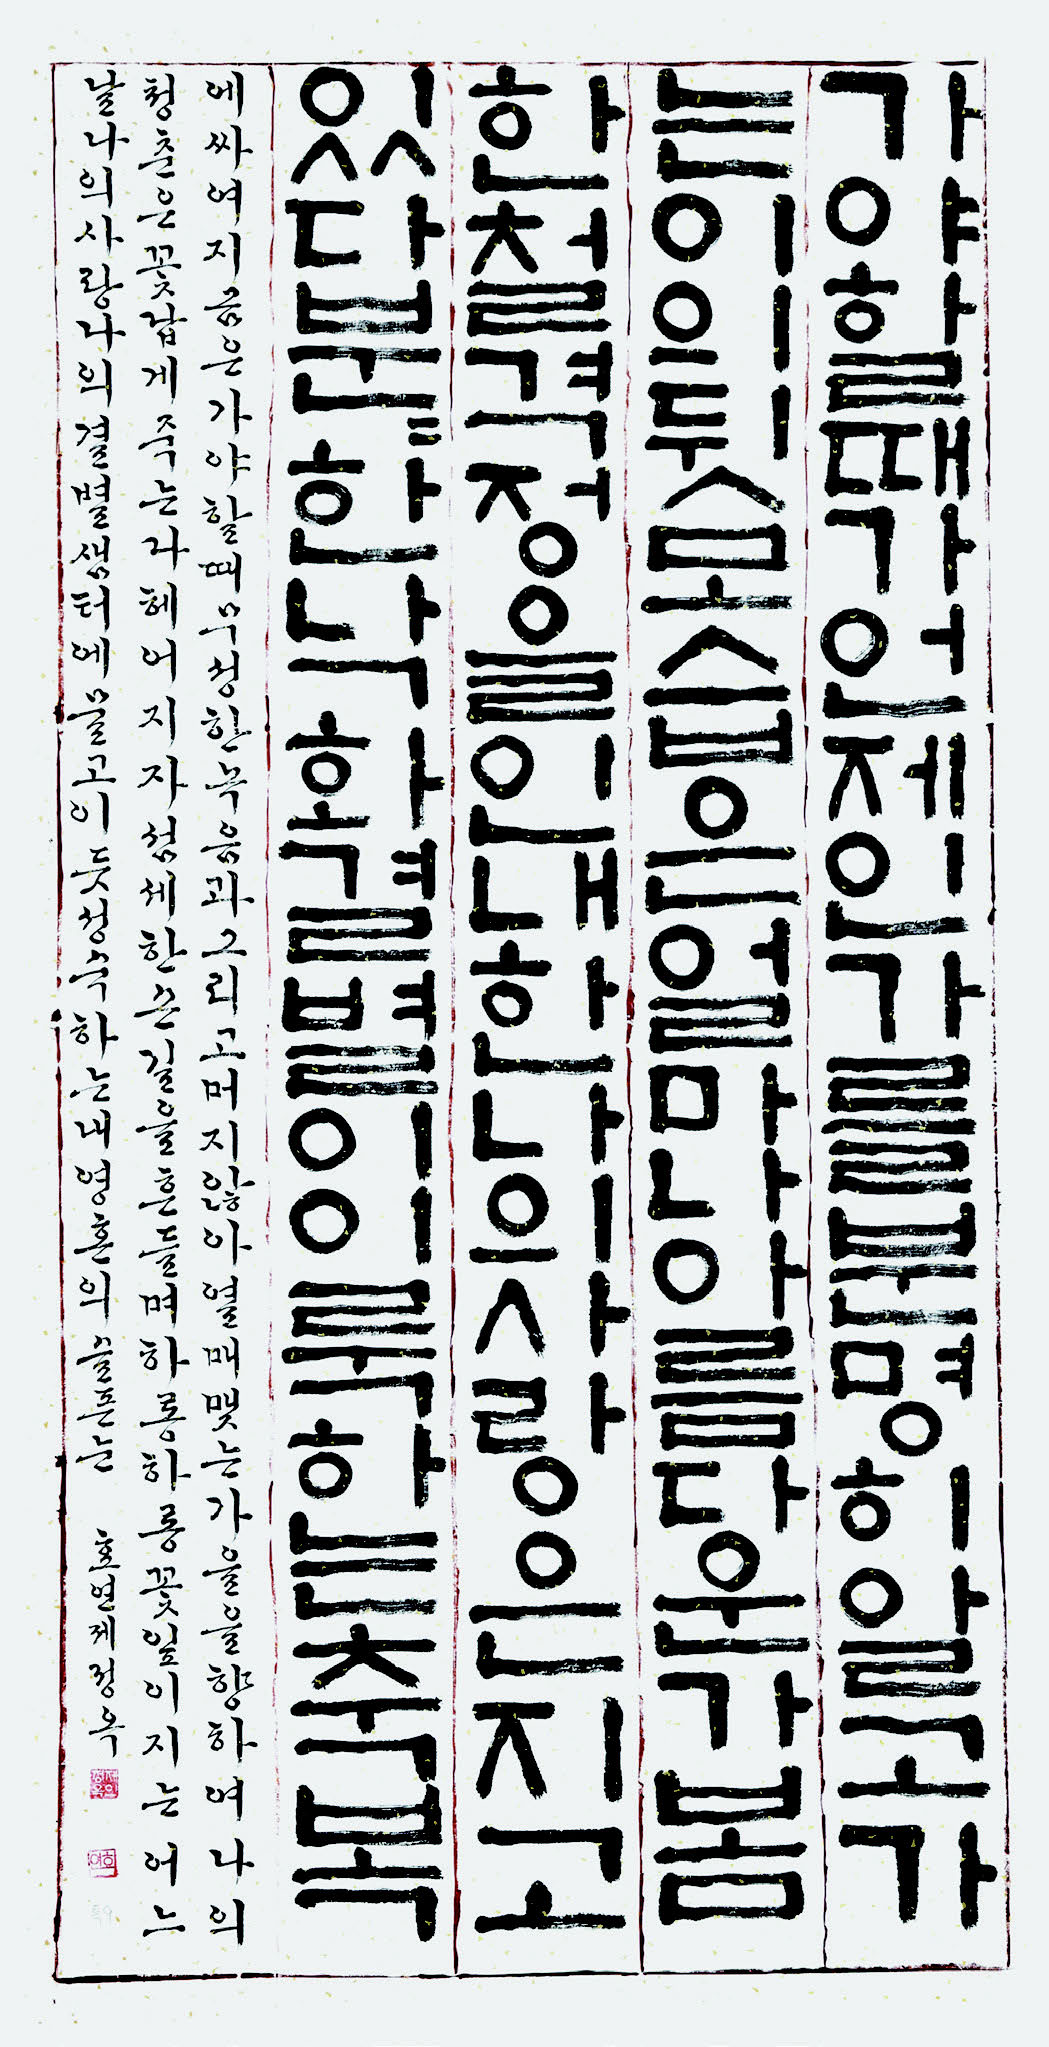 가야할때가언제인가를분명히알고가
는이의뒷모습은얼마나아름다운가봄
한철격정을인내한나의사랑은지고
있다분〻한낙화결별이이룩하는축복
에싸여지금은가야할때무성한녹음과그리고머지않아열매맺는가을을향하여나의
청춘은꽃답게죽는다헤어지자섬세한손길을흔들며하롱하롱꽃잎이지는어느
날나의사랑나의결별샘터에물고이듯성숙하는내영혼의슬픈눈 호연제정옥